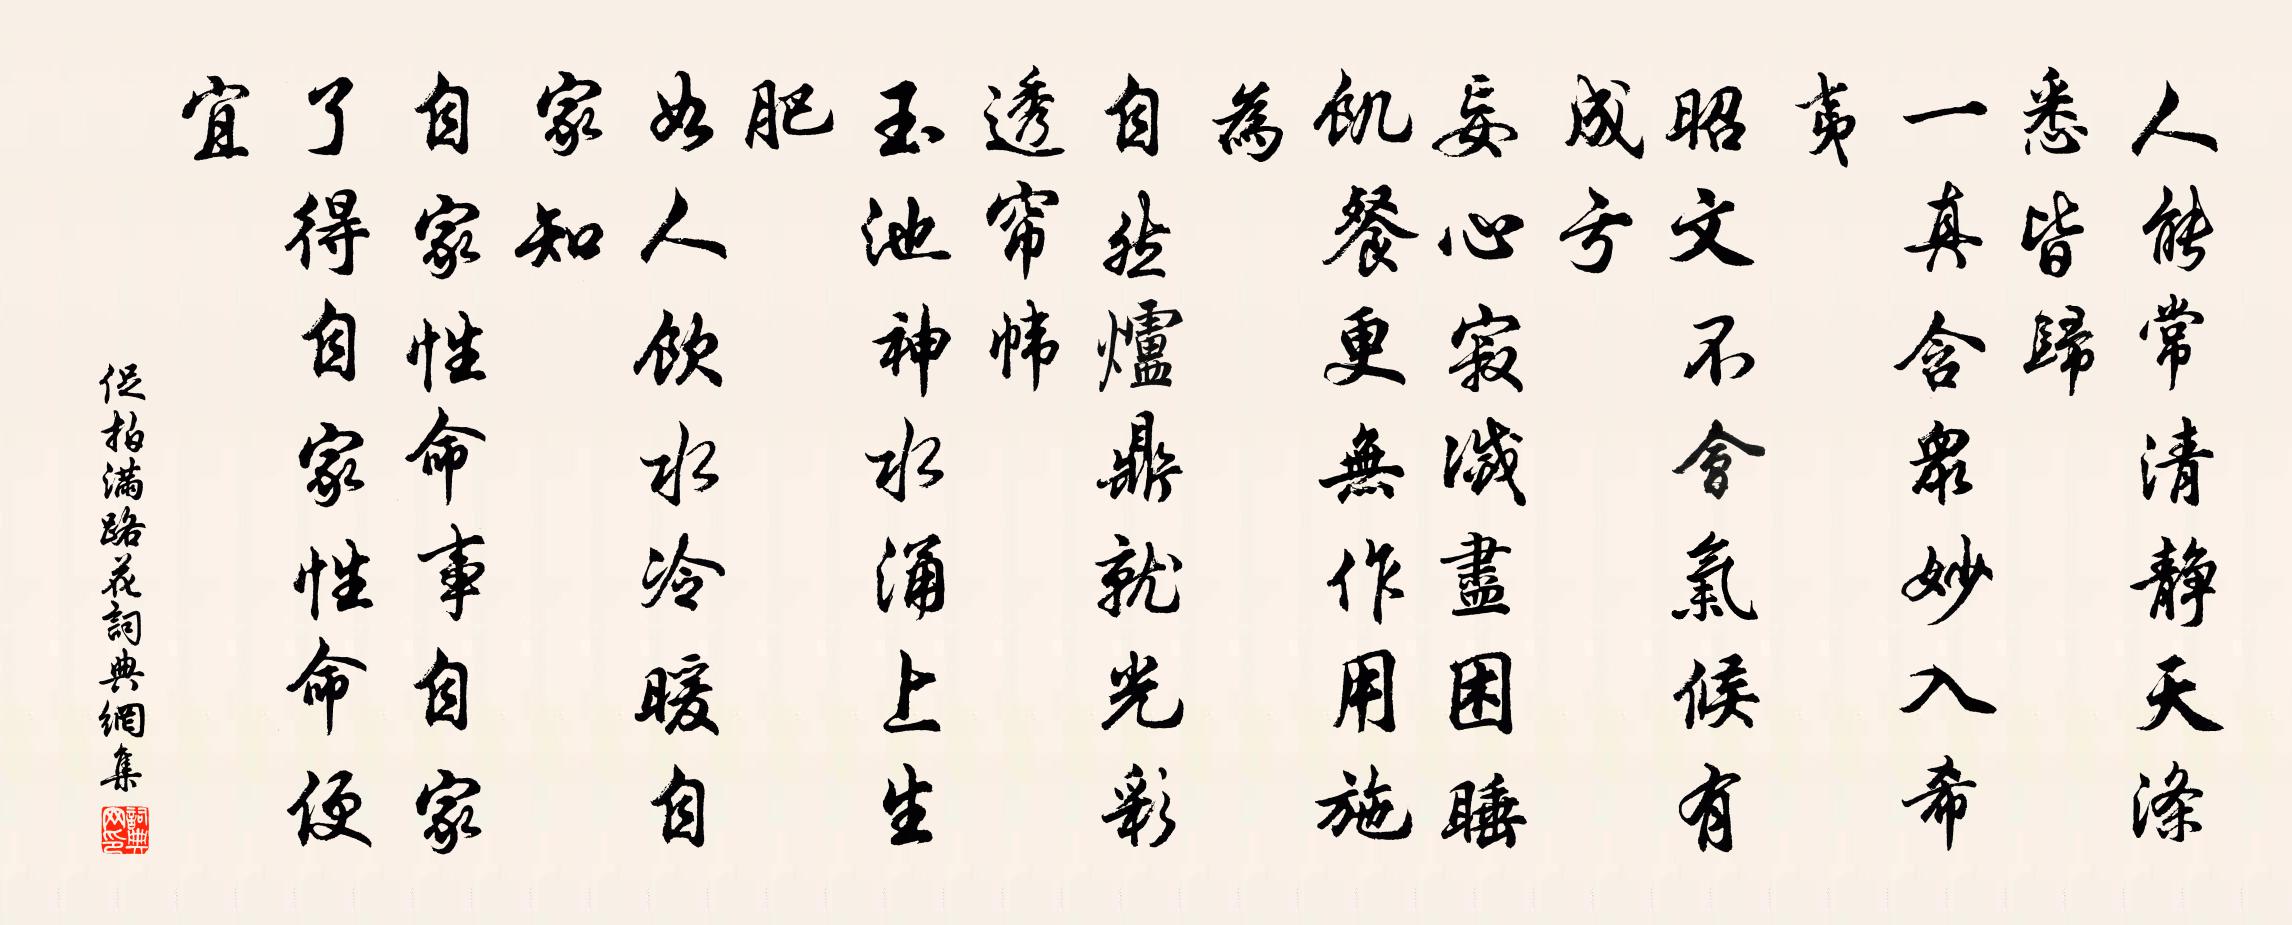 人能常清靜天滌
悉皆歸
一真含眾妙入希
夷
昭文不會氣候有
成亏
妄心寂滅盡困睡
飢餐更無作用施
為
自然爐鼎就光彩
透帘帏
玉池神水涌上生
肥
如人飲水冷暖自
家知
自家性命事自家
了得自家性命便
宜
促拍满路花詞典網集
詞典网印